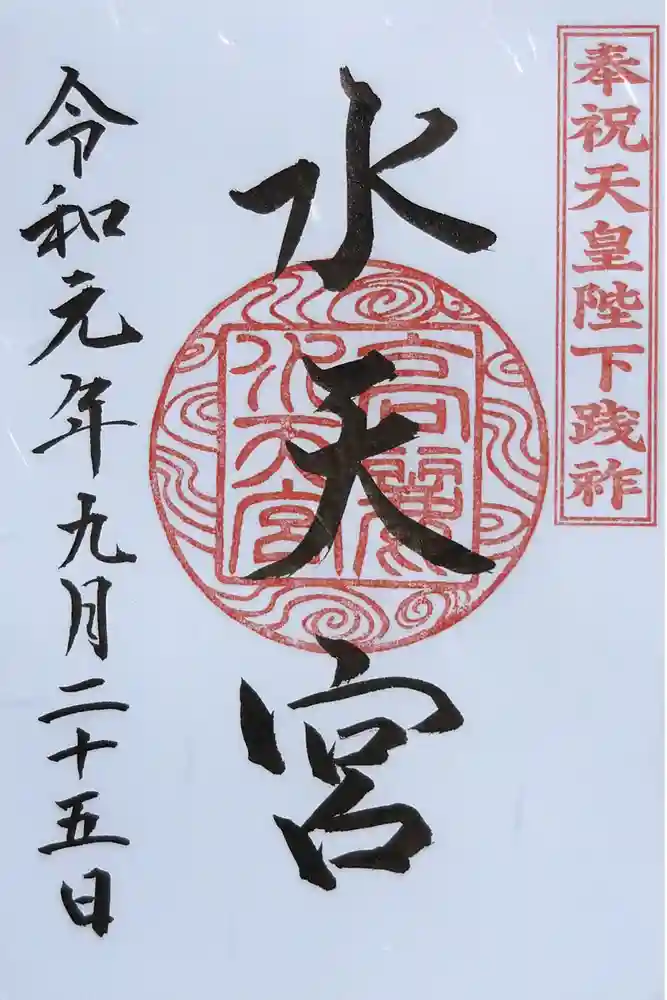 奉祝天皇陛下践祚
水天宮
高麗
水天宮
令和元年九月二十五日